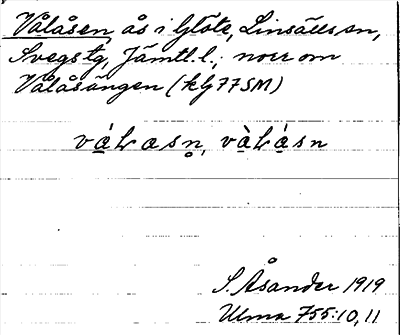 Vålåsen, ås i Glöte, Linsälls sn,
Svegs tg, Jämtl. l.; norr om
Vålåsängen (kbl 77 SM)
våLasn, vàLásn
S. Åsander 1919
Ulma 755:10, 11